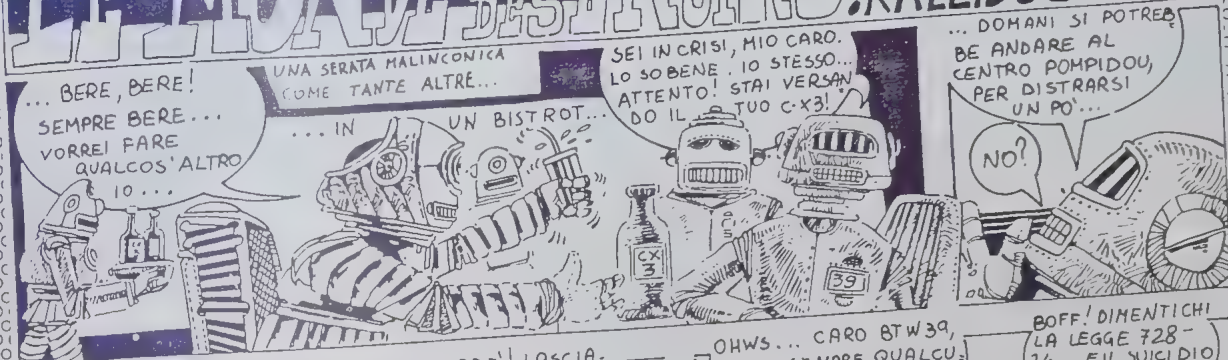 ... BERE, BERE!
SEMPRE BERE...
VORREI FARE
QUALCOS'ALTRO
IO...
UNA SERATA MALINCONICA
COME TANTE ALTRE...
... IN UN BISTROT...
SEI IN CRISI, MIO CARO.
LO SO BENE. IO STESSO...
ATTENTO! STAI VERSAN
DO IL TUO C·X3!
CX
3
39
... DOMANI SI POTREB
BE ANDARE AL
CENTRO POMPIDOU,
PER DISTRARSI
UN PO'...
NO?
OHWS... CARO BTW39,
QUALCU-
BOFF! DIMENTICHI
LA LEGGE 728-